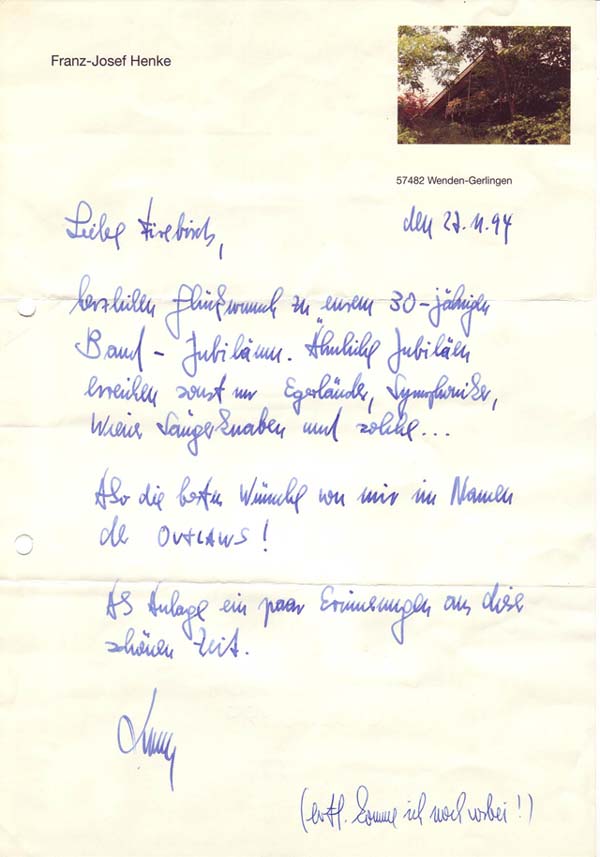 Franz-Josef Henke
57482 Wenden-Gerlingen
den 27.11.94
Liebe Firebirds,
herzlichen Glückwunsch zu eurem 30-jährigen
Band-Jubiläum. Ähnliche Jubiläen
erreichen sonst nur Egerländer, Symphoniker,
Wiener Sängerknaben und solche...
Also die besten Wünsche von mir im Namen
der OUTLAWS!
Als Anlage ein paar Erinnerungen an diese
schönen Zeit.
(evtl. komme ich noch vorbei!)